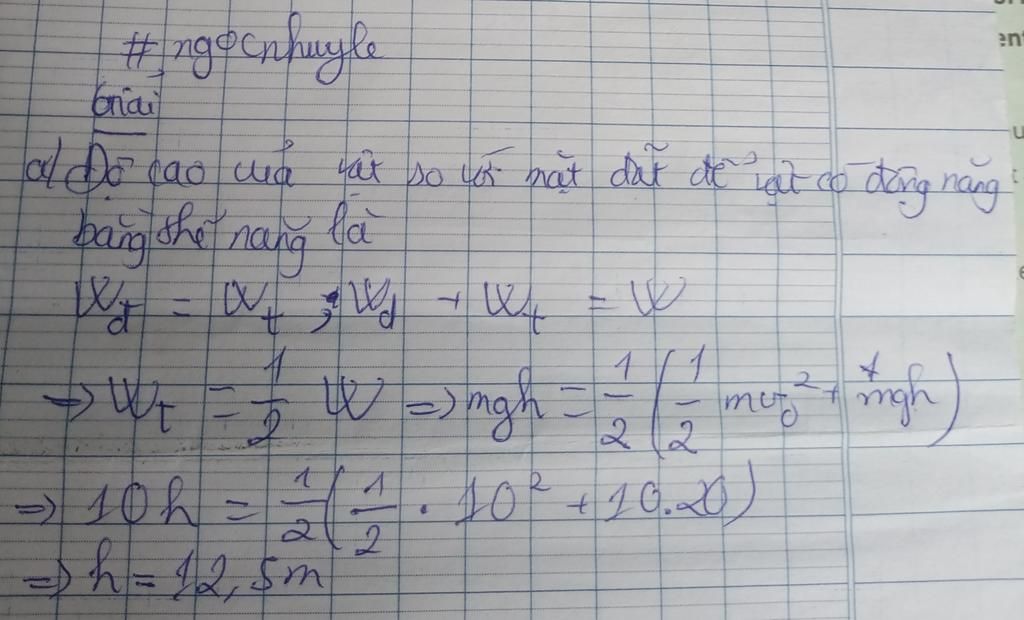 # ngọcnhuyle
Giải
a) Độ cao của vật so với mặt đất để vật có động năng
bằng thế năng là
Wđ = Wt ; Wđ + Wt = W
=> Wt = 1/2 W => mgh = 1/2 (1/2 mv₀² + mgh)
=> 10h = 1/2 (1/2 . 10² + 10.20)
=> h = 12,5m